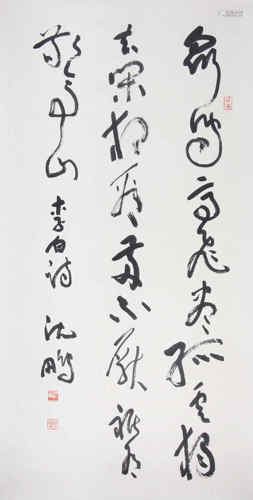 众鸟高飞尽孤云独
去闲相看两不厌只有
敬亭山 李白诗 沈鹏